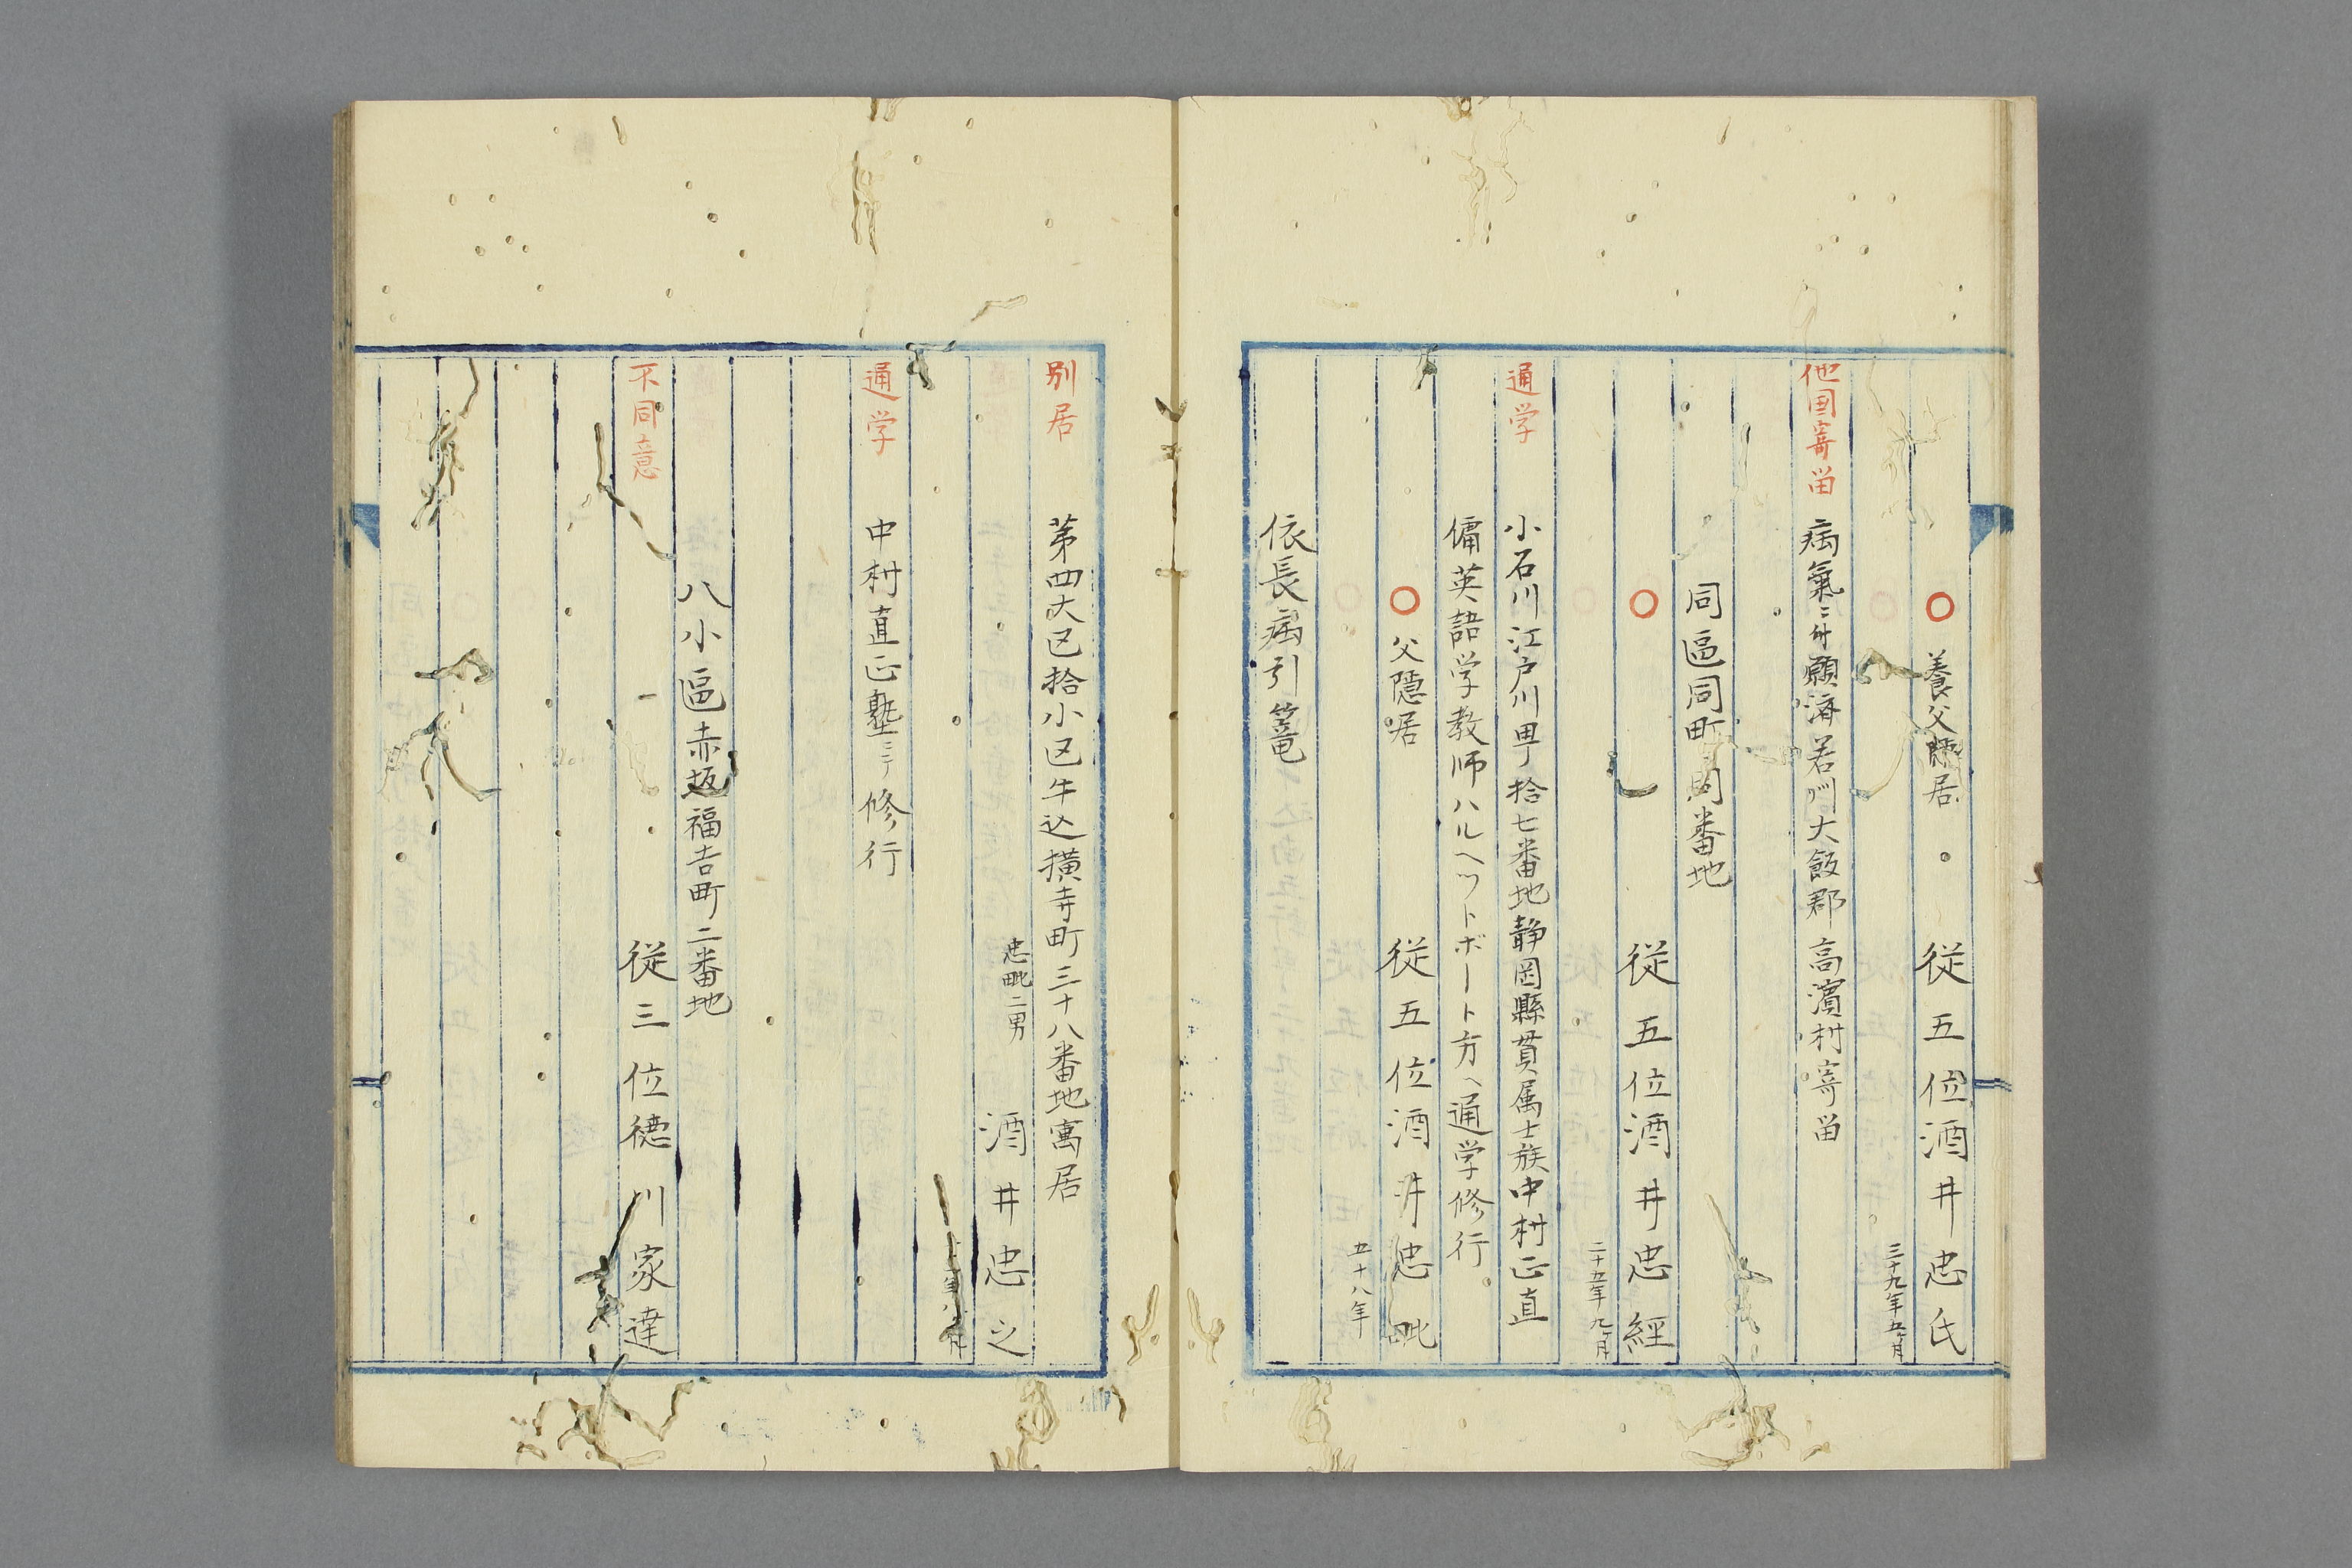 〇養父隠居 従五位酒井忠氏
三十九年五ヶ月
他国寄留 病氣ニ付願済若州大飯郡高濱村寄留
同區同町同番地
〇 従五位酒井忠經
二十五年九ヶ月
通学 小石川江戸川町拾七番地静岡縣貫属士族中村正直
傭英語学教師ハルヘツトボート方ヘ通学修行
〇父隠居 従五位酒井忠毗
五十八年
依長病引篭
別居 第四大区拾小区牛込横寺町三十八番地寓居
忠毗二男 酒井忠之
年八ヶ月
通学 中村直正塾ニテ修行
八小區赤坂福吉町二番地
不同意 従三位徳川家達